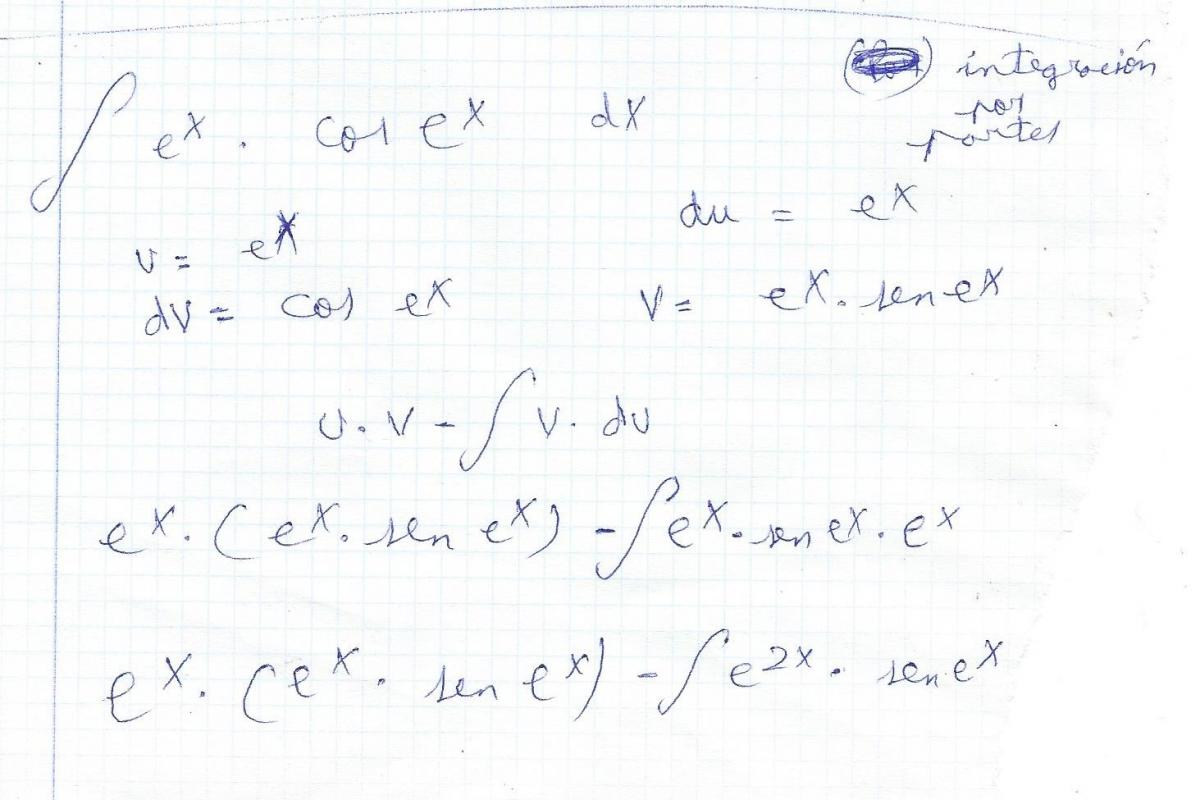 integración
por
partes
∫ e^x . cos e^x dx
u = e^x du = e^x
dv = cos e^x v = e^x . sen e^x
u . v - ∫ v . du
e^x . (e^x . sen e^x) - ∫ e^x . sen e^x . e^x
e^x . (e^x . sen e^x) - ∫ e^2x . sen e^x